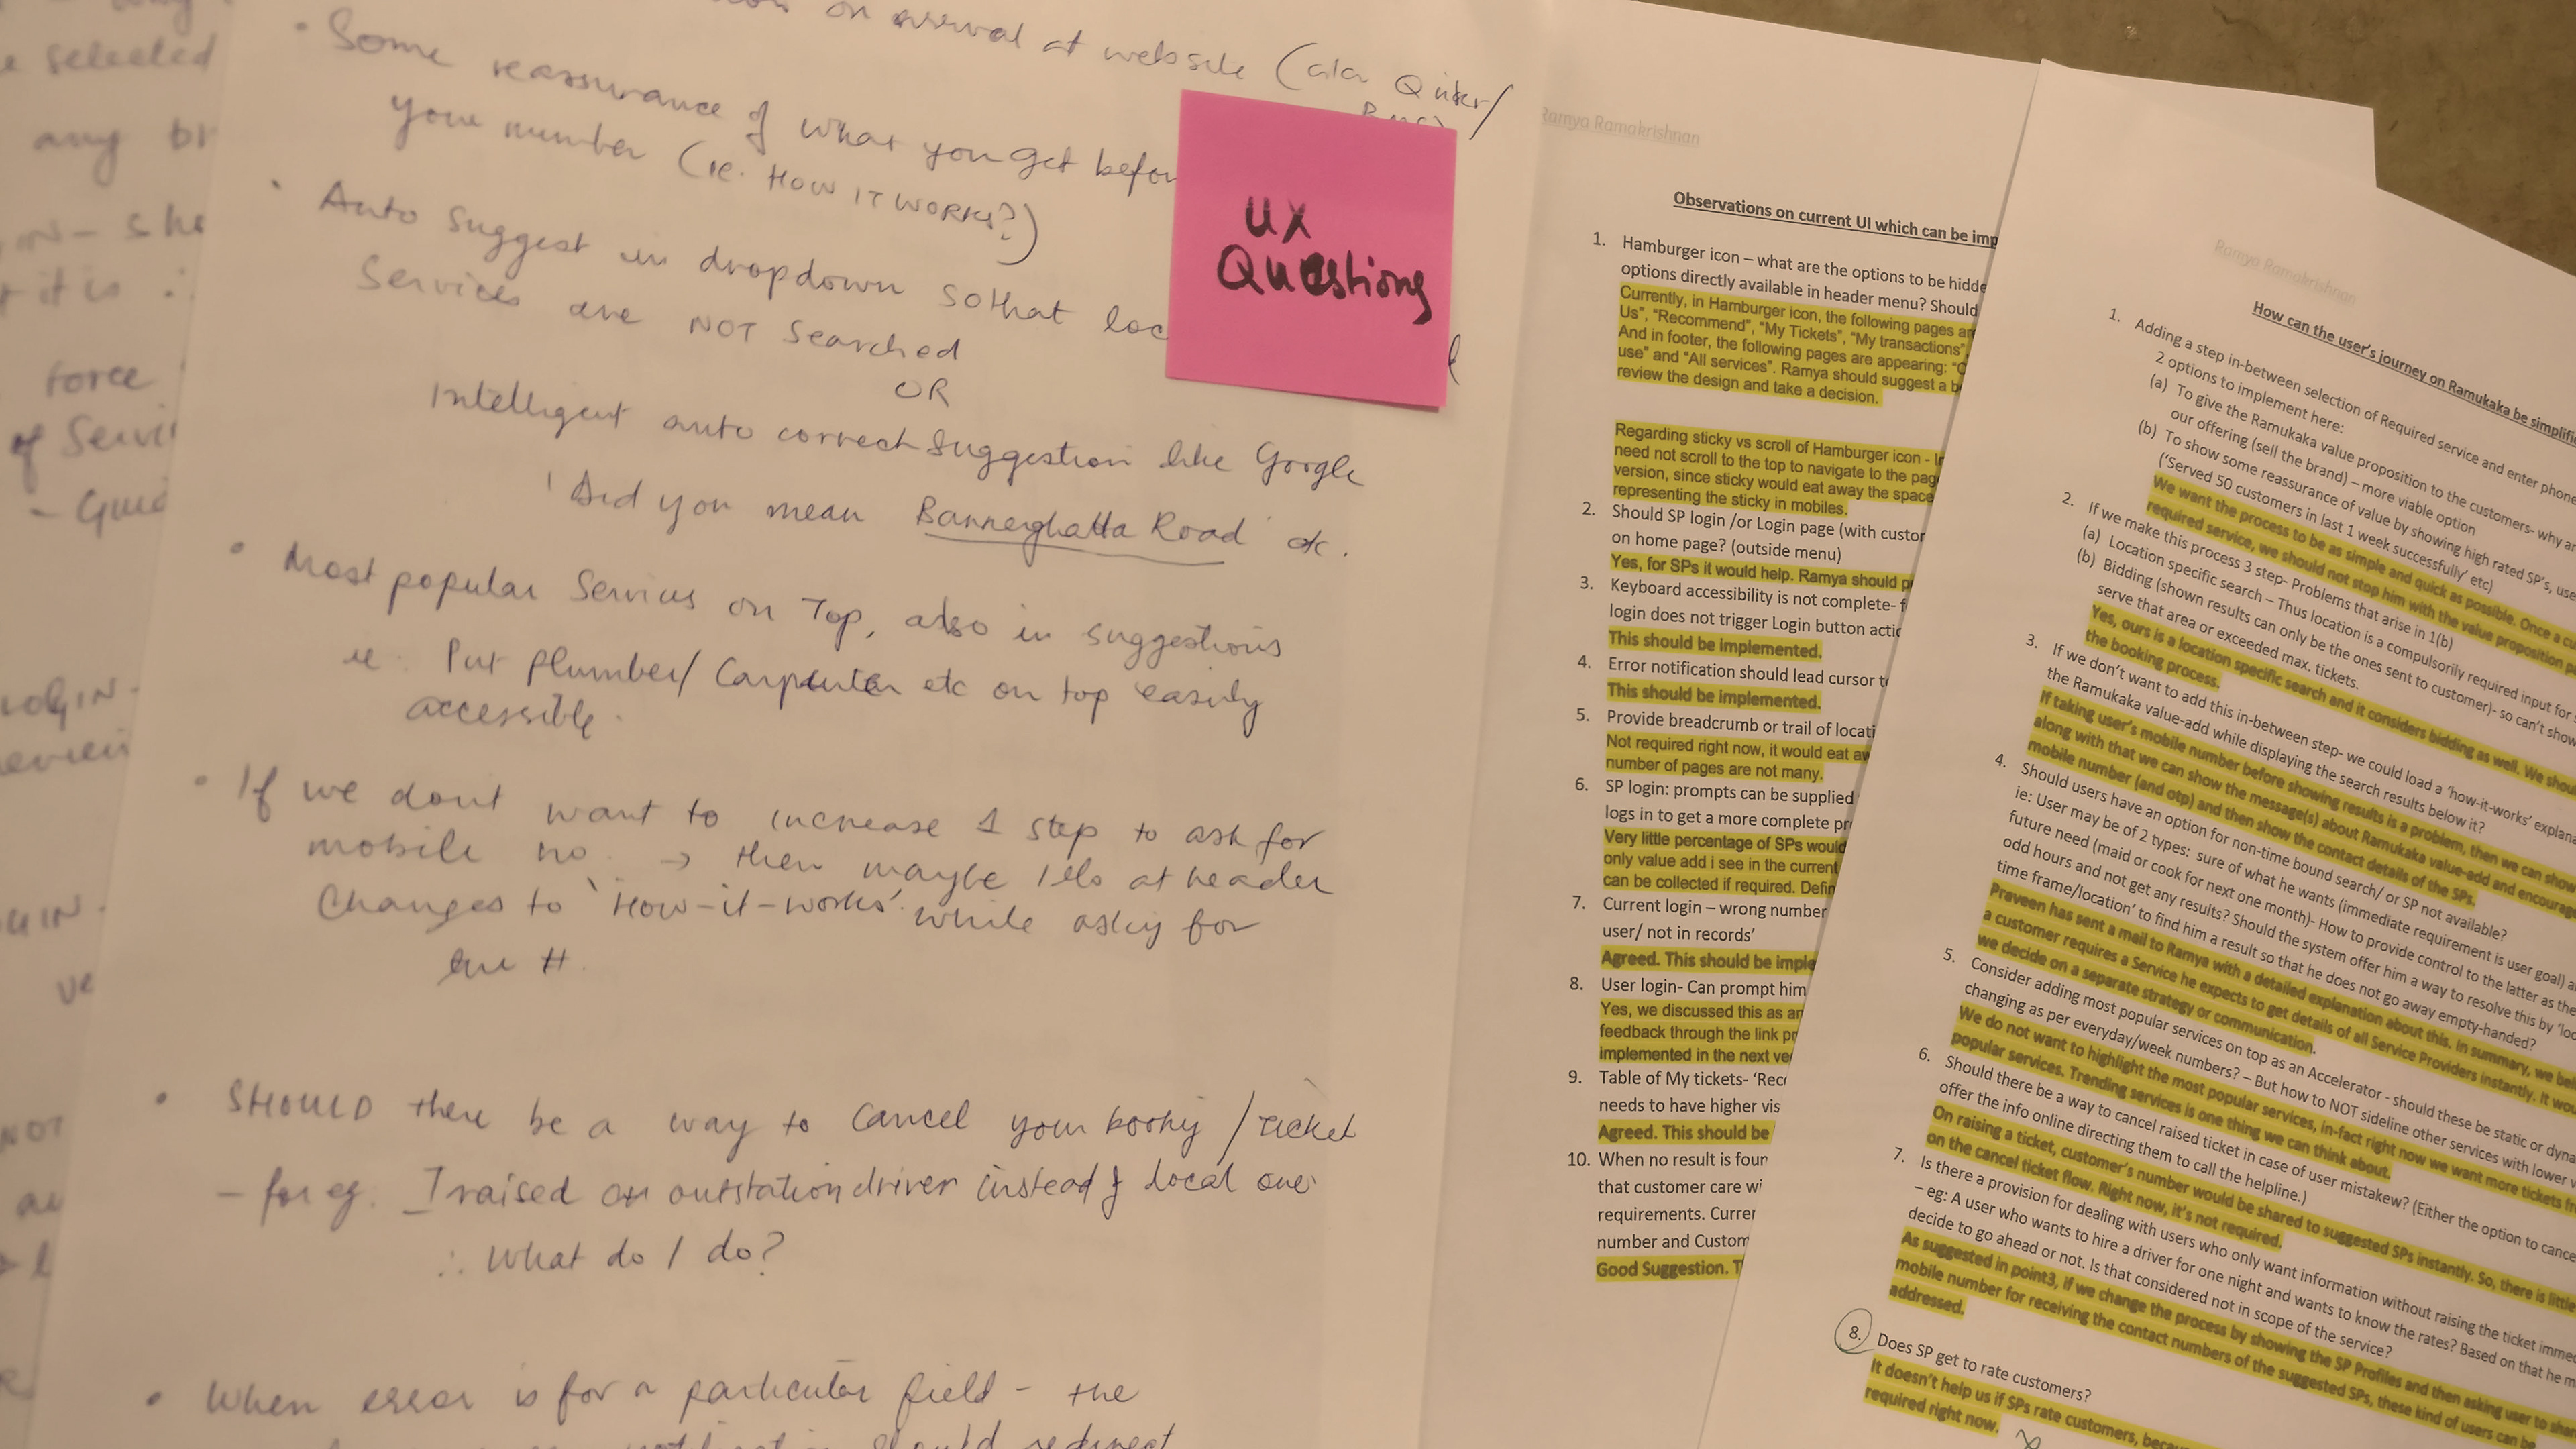 selected
any br
force
of Servi
on arrival at website (ala Quiker/
• Some reassurance of what you get befor
your number (ie. HOW IT WORKS?)
• Auto Suggest in dropdown sothat loc
Services are NOT Searched
OR
Intelligent auto correct Suggestion like Google
'Did you mean Bannerghatta Road' etc.
• Most popular Services on Top, also in suggestions
ie. Put plumber/ Carpenter etc on top easily
accessible.
• If we dont want to increase 1 step to ask for
mobile no. → then maybe at header
Changes to 'How-it-works' while askig for
the #.
• SHOULD there be a way to Cancel your booking / ticket
– for eg. I raised an outstation driver instead of local one
∴ What do I do?
• When error is for a particular field – the
should redirect
UX
Questions
Ramya Ramakrishnan
Observations on current UI which can be imp
1. Hamburger icon – what are the options to be hidde
options directly available in header menu? Should
Currently, in Hamburger icon, the following pages ar
Us", "Recommend", "My Tickets", "My transactions",
And in footer, the following pages are appearing: "C
use" and "All services". Ramya should suggest a b
review the design and take a decision.
Regarding sticky vs scroll of Hamburger icon - I
need not scroll to the top to navigate to the pag
version, since sticky would eat away the space
representing the sticky in mobiles.
2. Should SP login /or Login page (with custor
on home page? (outside menu)
Yes, for SPs it would help. Ramya should p
3. Keyboard accessibility is not complete- f
login does not trigger Login button actio
This should be implemented.
4. Error notification should lead cursor t
This should be implemented.
5. Provide breadcrumb or trail of locati
Not required right now, it would eat aw
number of pages are not many.
6. SP login: prompts can be supplied
logs in to get a more complete pr
Very little percentage of SPs would
only value add i see in the current
can be collected if required. Defin
7. Current login – wrong number
user/ not in records'
Agreed. This should be imple
8. User login- Can prompt him
Yes, we discussed this as an
feedback through the link pr
implemented in the next ve
9. Table of My tickets- 'Rec
needs to have higher vis
Agreed. This should be
10. When no result is foun
that customer care wi
requirements. Currer
number and Custom
Good Suggestion. T
Ramya Ramakrishnan
How can the user's journey on Ramukaka be simplifi
1. Adding a step in-between selection of Required service and enter phone
2 options to implement here:
(a) To give the Ramukaka value proposition to the customers- why ar
our offering (sell the brand) – more viable option
(b) To show some reassurance of value by showing high rated SP's, use
('Served 50 customers in last 1 week successfully' etc)
We want the process to be as simple and quick as possible. Once a cu
required service, we should not stop him with the value proposition p
2. If we make this process 3 step- Problems that arise in 1(b)
(a) Location specific search – Thus location is a compulsorily required input for
(b) Bidding (shown results can only be the ones sent to customer)- so can't show
serve that area or exceeded max. tickets.
Yes, ours is a location specific search and it considers bidding as well. We shou
the booking process.
3. If we don't want to add this in-between step- we could load a 'how-it-works' explana
the Ramukaka value-add while displaying the search results below it?
If taking user's mobile number before showing results is a problem, then we can show
along with that we can show the message(s) about Ramukaka value-add and encourage
mobile number (and otp) and then show the contact details of the SPs.
4. Should users have an option for non-time bound search/ or SP not available?
ie: User may be of 2 types: sure of what he wants (immediate requirement is user goal) a
future need (maid or cook for next one month)- How to provide control to the latter as the
odd hours and not get any results? Should the system offer him a way to resolve this by 'loc
time frame/location' to find him a result so that he does not go away empty-handed?
Praveen has sent a mail to Ramya with a detailed explanation about this. In summary, we bel
a customer requires a Service he expects to get details of all Service Providers instantly. It wou
we decide on a separate strategy or communication.
5. Consider adding most popular services on top as an Accelerator - should these be static or dyna
changing as per everyday/week numbers? – But how to NOT sideline other services with lower v
We do not want to highlight the most popular services, in-fact right now we want more tickets fr
popular services. Trending services is one thing we can think about.
6. Should there be a way to cancel raised ticket in case of user mistakew? (Either the option to cance
offer the info online directing them to call the helpline.)
On raising a ticket, customer's number would be shared to suggested SPs instantly. So, there is little
on the cancel ticket flow. Right now, it's not required.
7. Is there a provision for dealing with users who only want information without raising the ticket immed
– eg: A user who wants to hire a driver for one night and wants to know the rates? Based on that he m
decide to go ahead or not. Is that considered not in scope of the service?
As suggested in point3, if we change the process by showing the SP Profiles and then asking user to sha
mobile number for receiving the contact numbers of the suggested SPs, these kind of users can be
addressed.
8. Does SP get to rate customers?
It doesn't help us if SPs rate customers, becau
required right now.